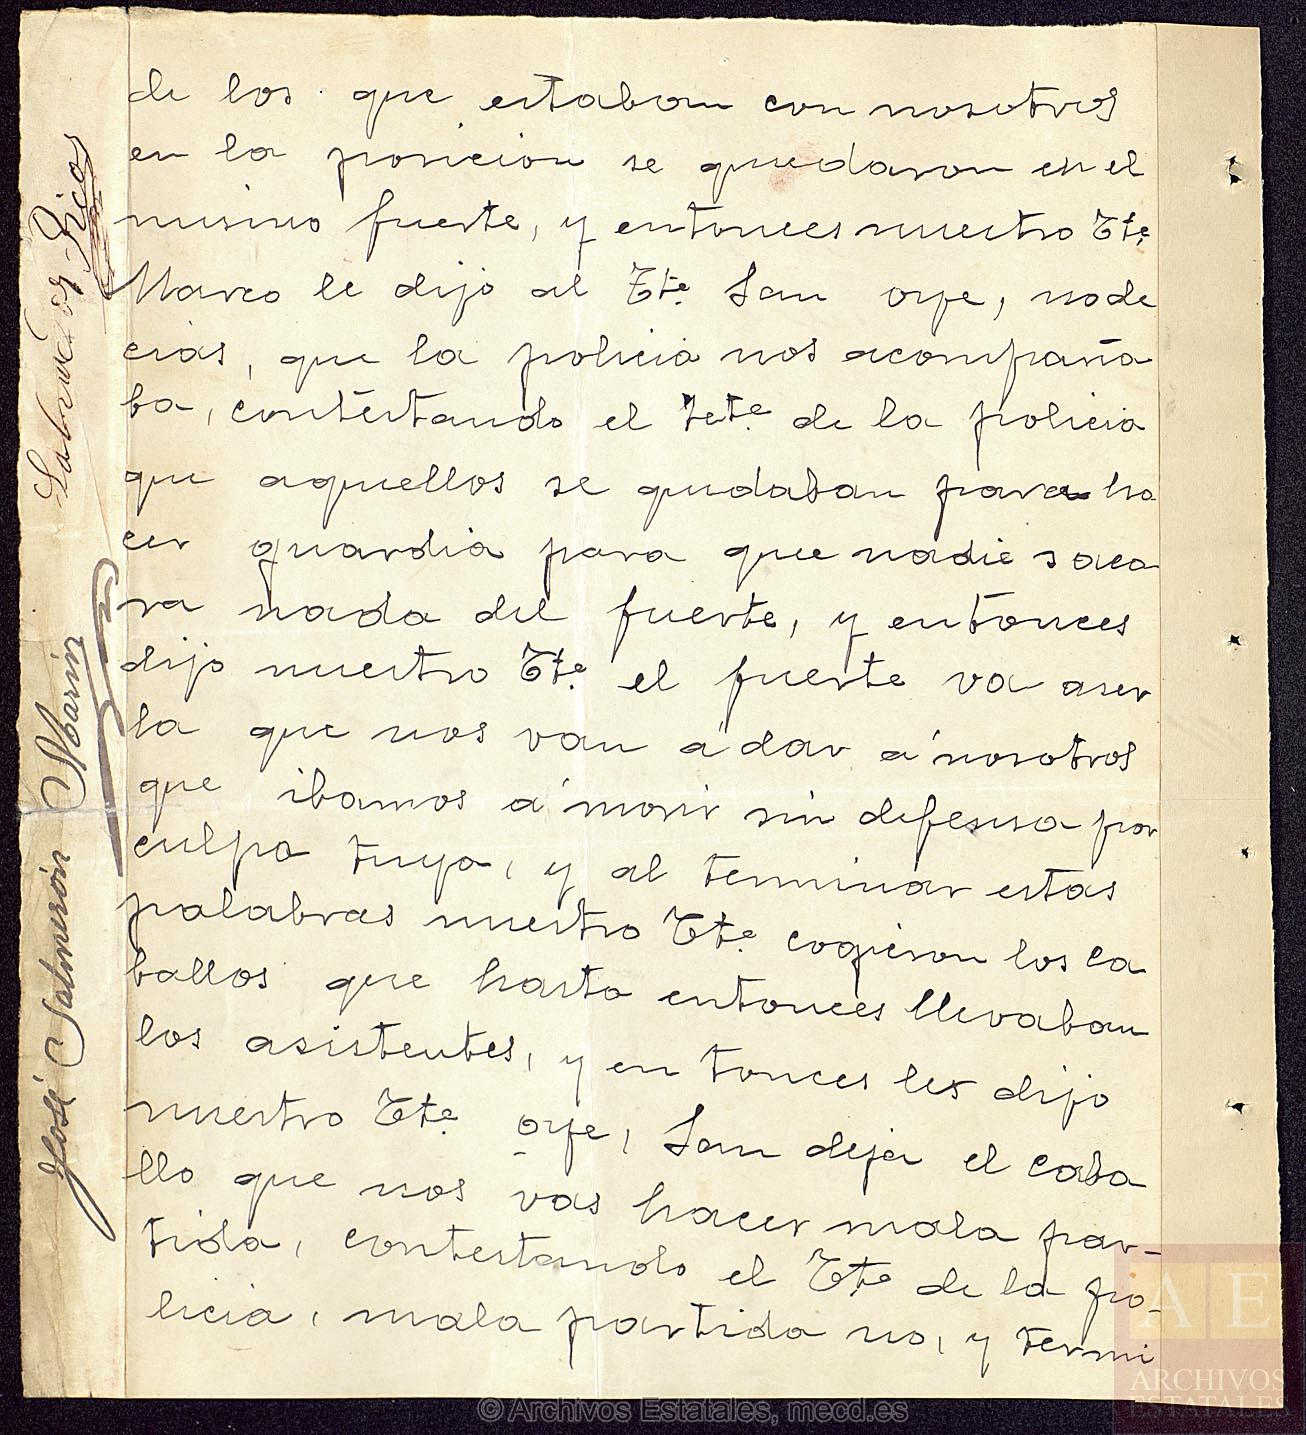 de los que estaban con nosotros
en la posicion se quedaron en el
mismo fuerte, y entonces nuestro Tte.
Marco le dijo al Tte. San oye, no de
cias, que la policia nos acompaña
ba, contestando el tete. de la policia
que aquellos se quedaban para ha
cer guardia para que nadie saca
ra nada del fuerte, y entonces
dijo nuestro Tte. el fuerte va aser
la que nos van á dar á nosotros
que ibamos á morir sin defensa por
culpa tuya, y al terminar estas
palabras nuestro Tte. cogieron los ca
ballos que hasta entonces llevaban
los asistentes, y en tonces les dijo
nuestro Tte. oye, San deja el caba
llo que nos vas hacer mala par-
tida, contestando el Tte. de la po-
licia, mala partida no, y termi
José Salmerón Marín
Salvador Ricos
AE
ARCHIVOS
ESTATALES
© Archivos Estatales, mecd.es